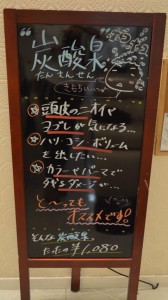 "炭酸泉"
たんさんせん
きもちいい
☆頭皮のニオイや
ヨゴレが気になる…
☆ハリ・コシ・ボリューム
を出したい…
☆カラーやパーマで
ダメージが…
と〜っても
オススメです!
そんな炭酸泉
たったの¥1,080